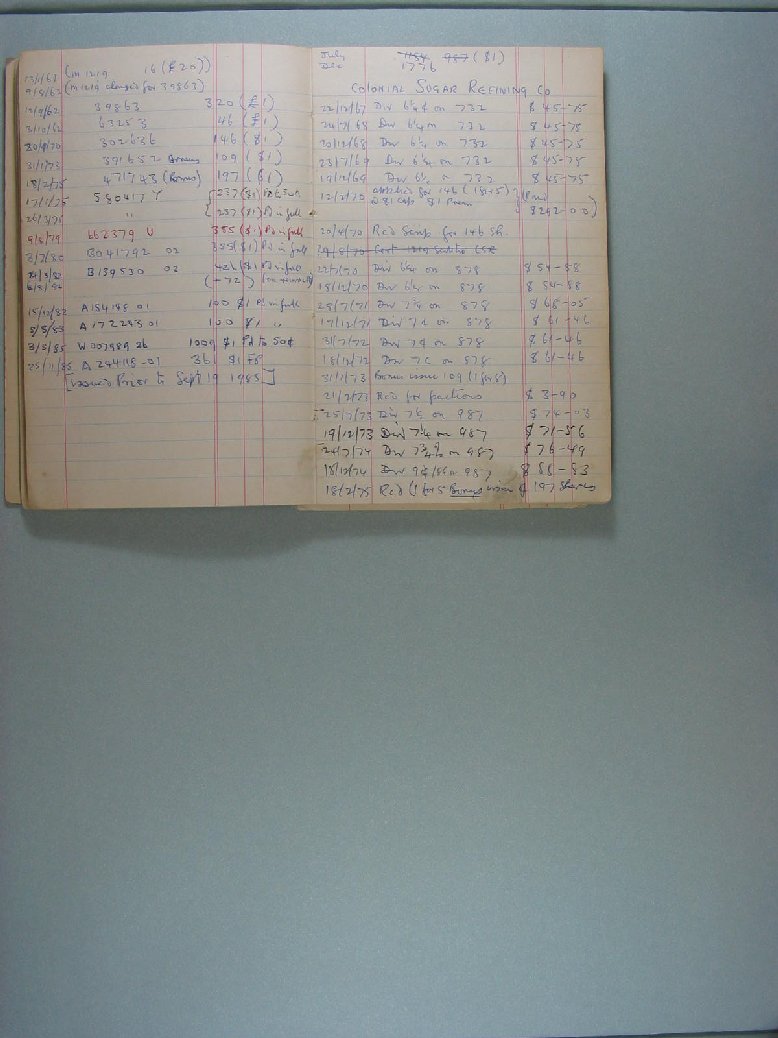 13/1/61 (M 1219 16 (£20))
9/8/62 (M 1219 changed for 39863)
12/9/62 39863 320 (£1)
3/10/62 63253 46 (£1)
20/4/70 302636 146 ($1)
31/1/73 391652 Bonus 109 ($1)
18/2/75 471743 (Bonus) 197 ($1)
17/1/75 580417 Y 237 ($1) Pd
" 237 ($1) Pd in full
9/8/79 662379 U 355 ($1) Pd in full
3/7/80 B041792 02 355 ($1) Pd in full
B139530 02 426 ($1) Pd in full
(-72)
15/10/82 A154198 01 100 $1 Pd in full
5/5/83 A172253 01 100 $1 "
3/5/85 W007989 26 1009 $1 Pd to 50¢
25/11/85 A 24418-01 361 $1 FP
[issued Prior to Sept 19 1985]
July 1184 987 ($1)
Dec 1776
COLONIAL SUGAR REFINING CO
22/12/67 Div 6¼¢ on 732 $45-75
24/7/68 Div 6¼ on 732 $45-75
20/12/68 Div 6¼ on 732 $45-75
23/7/69 Div 6¼ on 732 $45-75
19/12/69 Div 6¼ on 732 $45-75
12/2/70 applied for 146 (1 for 5) (Paid
@ $1 Cap $1 Prem $292-00)
20/4/70 Rec'd Scrip for 146 Sh.
Cert 1219
22/7/70 Div 6¼ on 878 $54-88
18/12/70 Div 6¼ on 878 $54-88
28/7/71 Div 7¾ on 878 $68-05
17/12/71 Div 7¢ on 878 $61-46
31/7/72 Div 7¢ on 878 $61-46
18/12/72 Div 7¢ on 878 $61-46
31/1/73 Bonus issue 109 (1 for 8)
21/2/73 Rec'd for fractions $3-90
25/7/73 Div 7½ on 987 $74-03
19/12/73 Div 7¼ on 987 $71-56
24/7/74 Div 7¾¢ on 987 $76-49
18/12/74 Div 9¢ on 987 $88-83
18/2/75 Rec'd (1 for 5 Bonus issue of 197 Shares